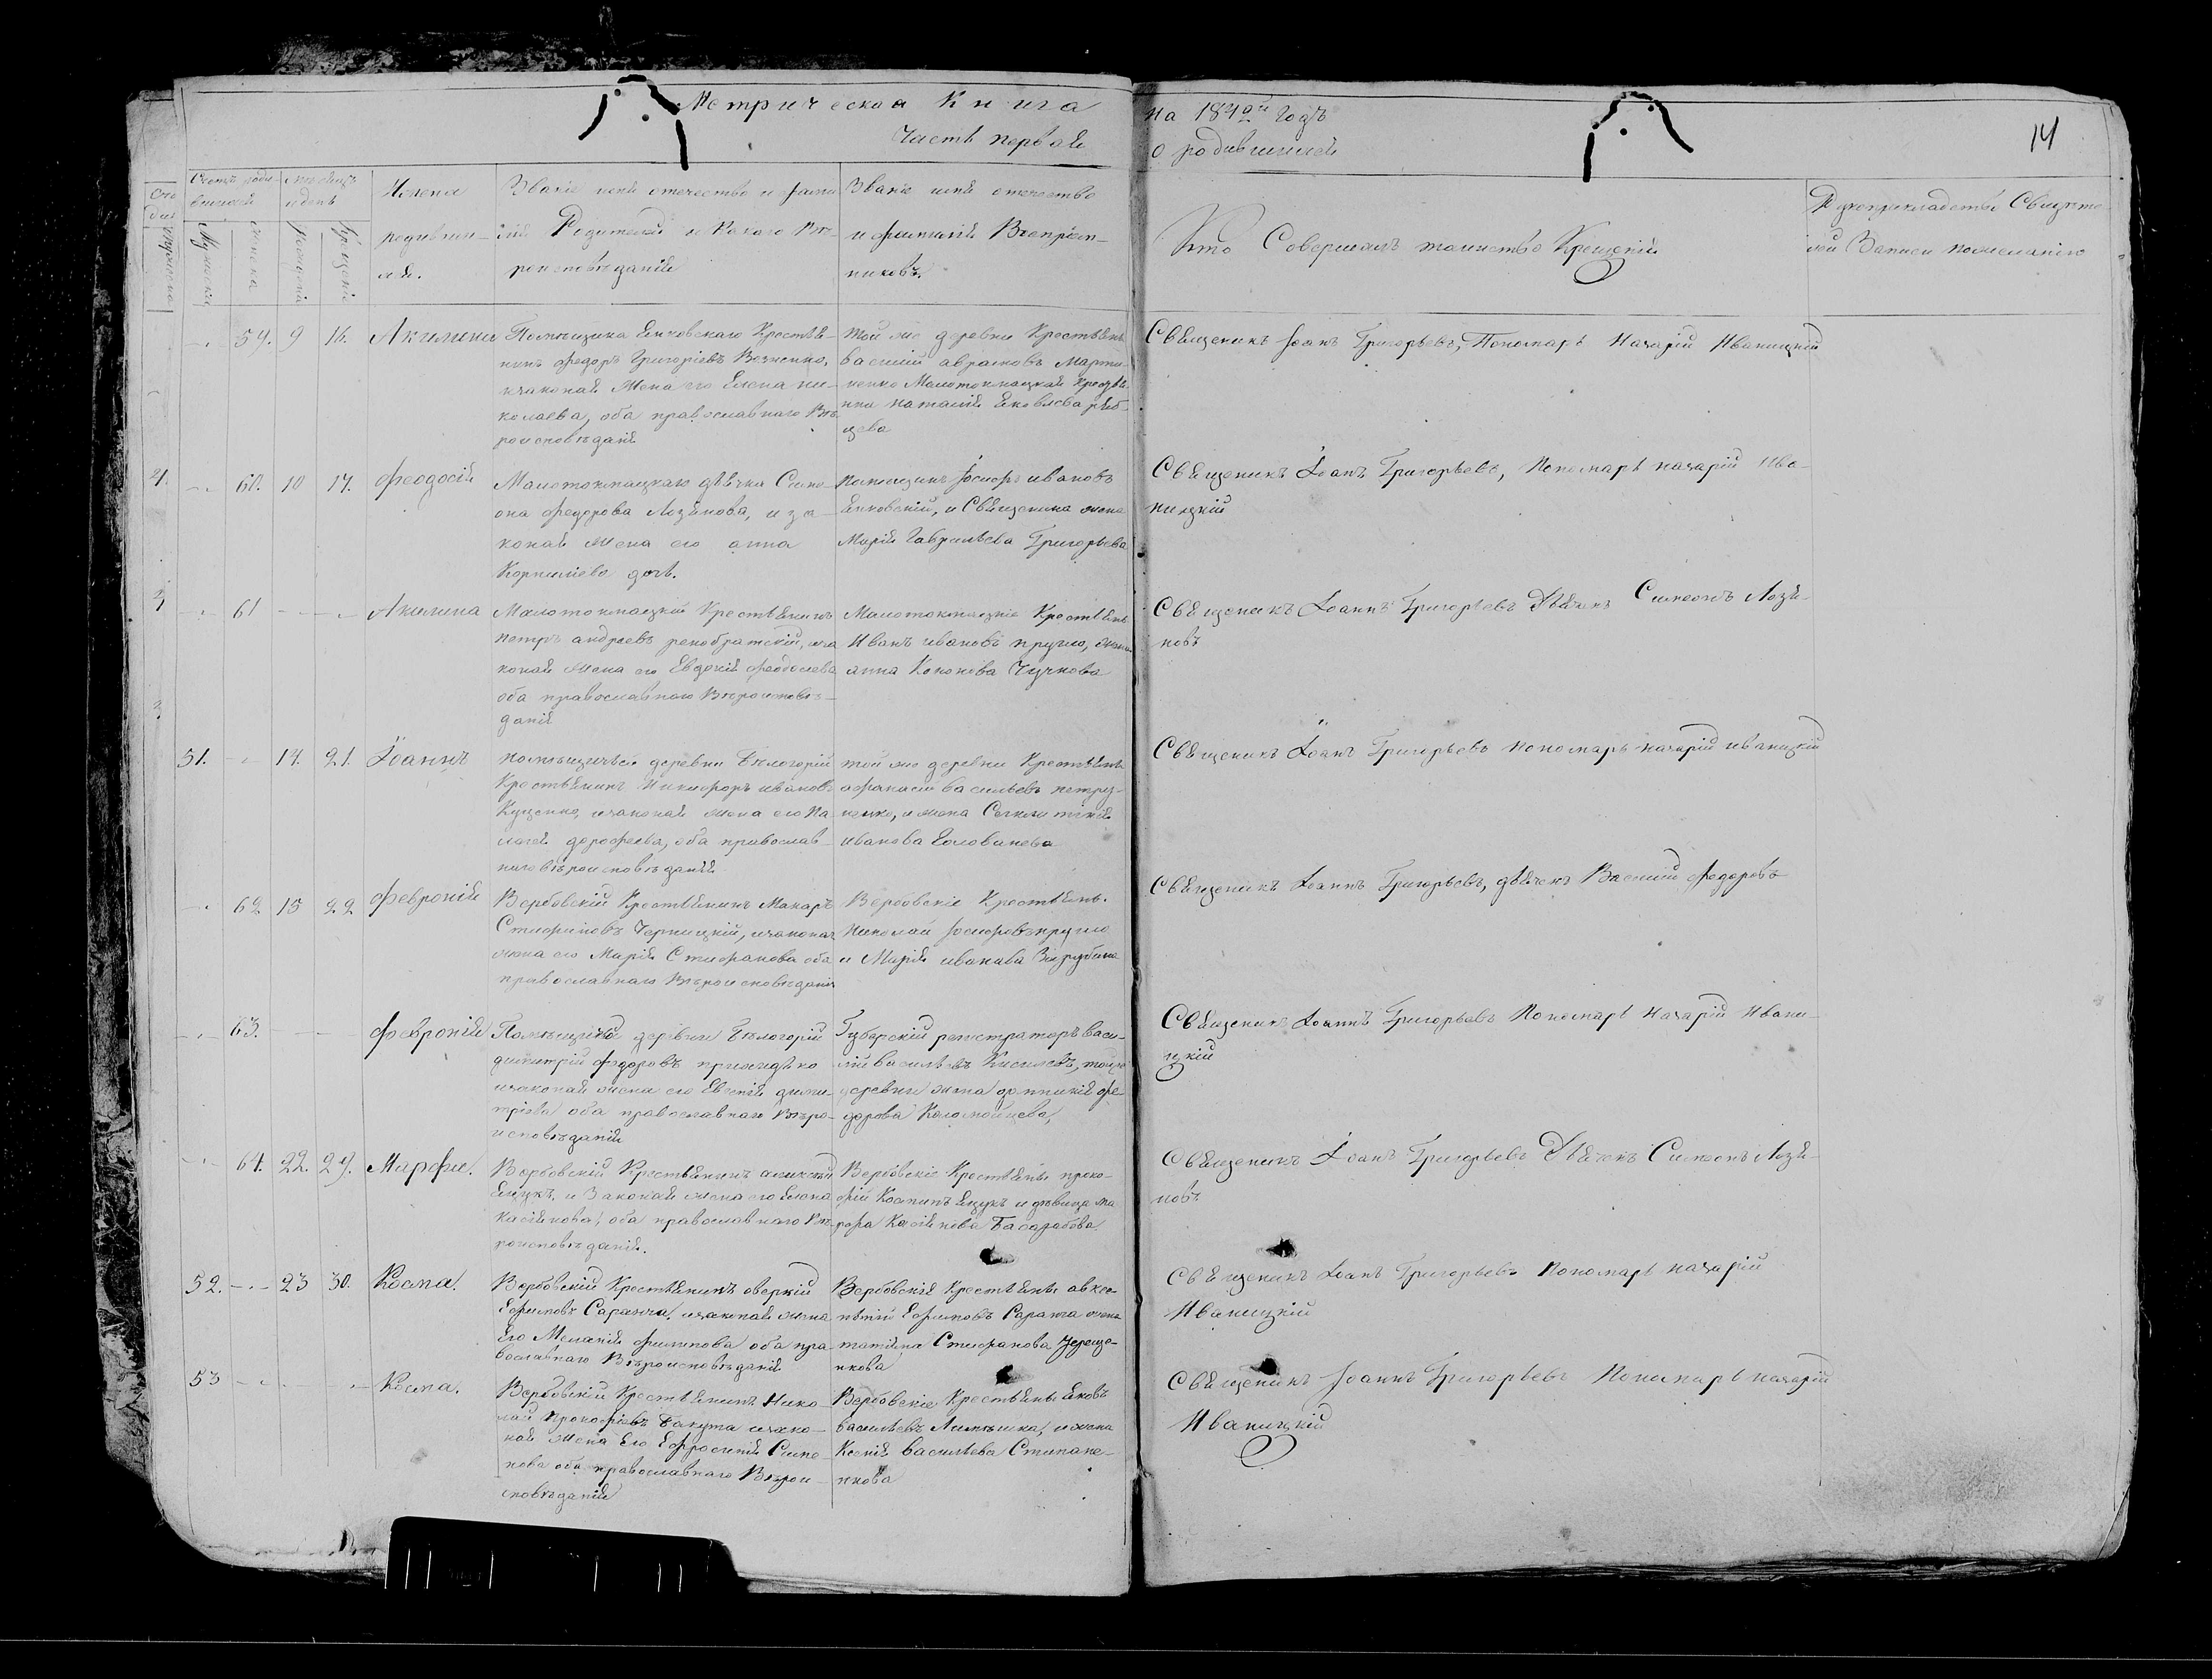 Метрическая Книга
на 1840й Годъ
Часть первая
о родившихся
14
Счетъ роди-
вшихся
Мѣсяцъ
и день
Имена
родивши-
хся.
Званіе имя отечество и фами-
лія Родителей и Какого Вѣ-
роисповѣданія
Званіе имя отечество
и фамилія Воспріем-
никовъ.
Кто Совершалъ таинство Крещенія
Рукоприкладство Свидѣте-
лей Записи по желанію
Мужеска
женска
рожденія
Крещенія
59. 9 16. Акилина
Помѣщика Янковскаго Крестья-
нинъ Федоръ Григоріевъ
изаконая Жена его Елена Ни-
колаева, оба православнаго Вѣ-
роисповѣданія
той же деревни Крестьянъ
василій Марти-
ненко Малотокмацкая
Наталія Яковлева
Священикъ Іоанъ Григорьевъ, Пономарь Назарій Иваницкій
60. 10 17. Феодосія
Малотокмацкаго дьячка Симе-
она Федорова Лозянова, и за-
коная Жена его анна
Корнилиева дочь.
помещикъ Іосифъ ивановъ
Янковскій, и Священика жена
Марія Гаврильева Григорьева
Священикъ Іоанъ Григорьевъ, Пономарь назарій Ива-
ницкій
61 Акилина
Малотокмацкій Крестьянинъ
петръ андреевъ иза
коная Жена его Евдокія Феодосиева
оба православнаго Вѣроисповѣ-
данія
Малотокмацкіе Крестьянъ
Иванъ ивановъ жена
анна Кононова Чучкова
Священикъ Іоаннъ Григорьевъ Дьячекъ Симеонъ Лозя-
новъ
51. 14. 21. Іоаннъ
помѣщичьей деревни Бѣлогорія
Крестьянинъ Никифоръ ивановъ
Куценко, изаконая жена его Па-
лагея дорофеева, оба православ-
наго вѣроисповѣданія
той же деревни Крестьянъ
афанасій васильевъ петру-
ненко, и жена
иванова Головинева
Священикъ Іоанъ Григорьевъ Пономарь назарій иваницкій
62 15 22 Февронія
Вербовскій Крестьянинъ Макаръ
Стифановъ Черницкій, изаконая
жена его Марія Стифанова оба
православнаго Вѣроисповѣданія
Вербовскіе Крестьянъ.
Николай Іосифовъ
и Марія иванова
Священикъ Іоаннъ Григорьевъ, дьячекъ Василій Федоровъ
63. Февронія
Помѣщичей деревни Бѣлогорія
димитрій Федоровъ
изаконая жена его Евгенія дими-
тріева оба православнаго Вѣро-
исповѣданія
Губерскій регистраторъ Васи-
лій васильевъ Киселевъ, тойже
деревни жена Фе-
дорова Коломойцева,
Священикъ Іоаннъ Григорьевъ Пономарь Назарій Ивани-
цкій
64. 22. 29. Марфа.
Вербовскій Крестьянинъ аликсей
Яцукъ, и Законая жена его Елена
Касіянова, оба православнаго Вѣ-
роисповѣданія.
Вербовскіе Крестьяны проко-
фій Яцукъ и дѣвица ма-
рфа Касіянова
Священикъ Іоанъ Григорьевъ Дьячекъ Симеонъ Лозя-
новъ
52. 23 30. Косма.
Вербовскій Крестьянинъ аверкій
Ефимовъ Саранча, изаконая жена
Его Меланія Филипова оба пра-
вославнаго Вѣроисповѣданія
Вербовскія Крестьяны авксе-
нтій Ефимовъ Саранча жена
татіяна Стифанова Череде-
нкова
Священикъ Іоанъ Григорьевъ Пономарь назарій
Иваницкій
53 Косма.
Вербовскій Крестьянинъ Нико-
лай Прокофіевъ Бакута изако-
ная жена Его Ефросинія Симо-
нова оба православнаго Вѣрои-
сповѣданія
Вербовскіе Крестьяны Яковъ
васильевъ и жена
Ксенія васильева Стипане-
нкова
Священикъ Іоаннъ Григорьевъ Пономарь назарій
Иваницкій